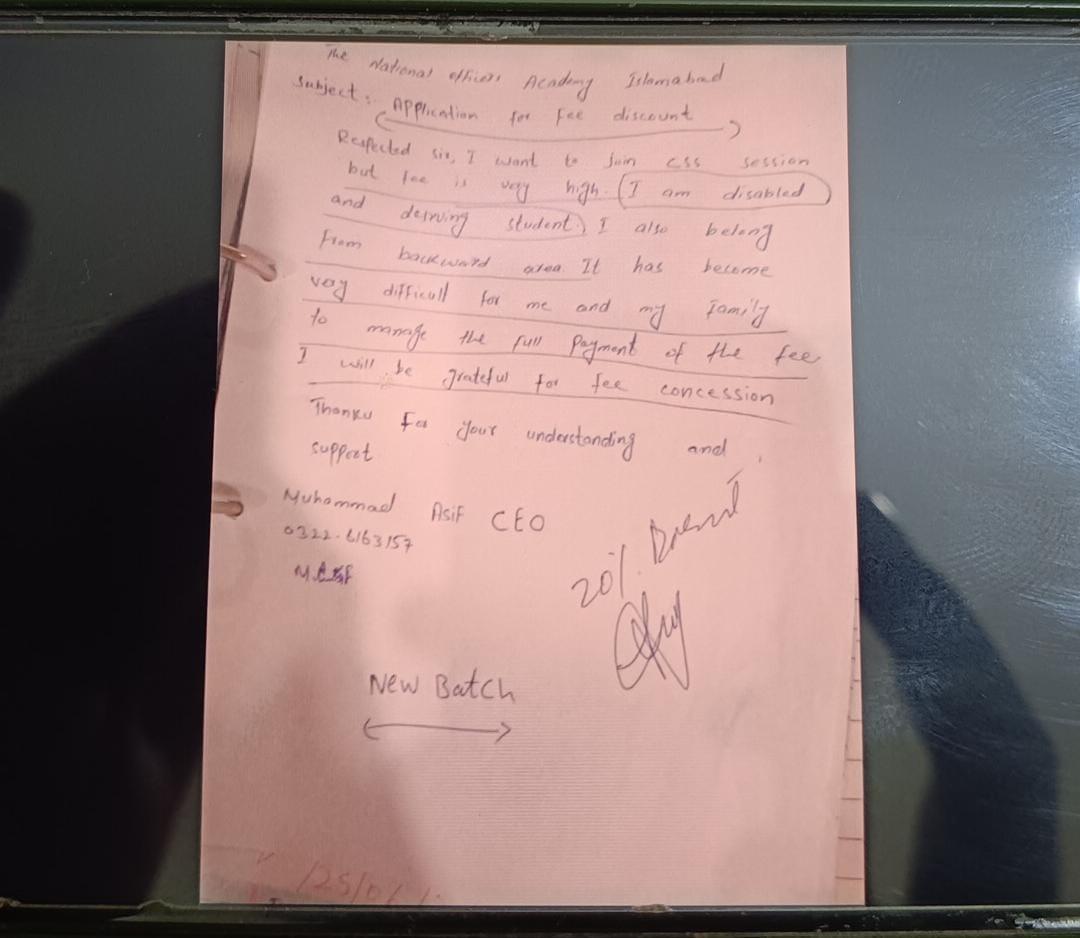 The National officers Academy Islamabad
Subject: Application for Fee discount
Respected sir, I want to join css session
but fee is very high. (I am disabled
and derving student.) I also belong
from backward area. It has become
very difficult for me and my family
to manage the full payment of the fee
I will be grateful for fee concession
Thanku For your understanding and
support
Muhammad Asif CEO
0322-6163157
20%
New Batch